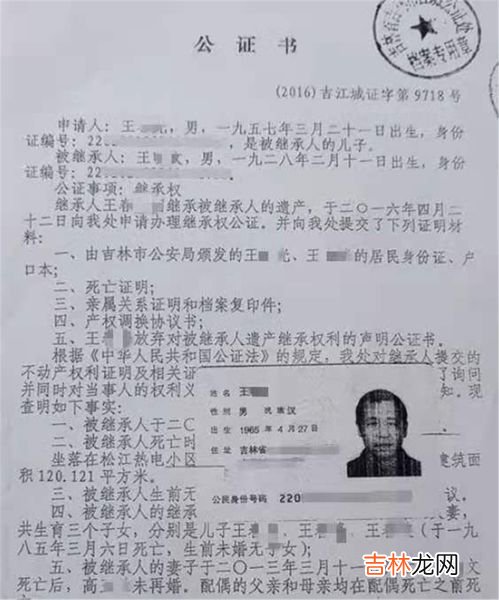 公证书
档案专用章
(2016)吉江城证字第9718号
申请人：王 ，男，一九五七年三月二十一日出生，身份
证编号：22 ，是被继承人的儿子。
被继承人：王 ，男，一九二八年二月十一日出生，身份
证编号：22
公证事项：继承权
继承人王春 继承被继承人的遗产，于二〇一六年四月二
十二日向我处申请办理继承权公证。并向我处提交了下列证明材
料：
一、由吉林市公安局颁发的王 、王 的居民身份证、户
口本；
二、死亡证明；
三、亲属关系证明和档案复印件；
四、产权调换协议书；
五、王 放弃对被继承人遗产继承权利的声明公证书。
根据《中华人民共和国公证法》的规定，我处对继承人提交的
不动产权利证明及相关证 了询问
并同时对当事人的权利义 知。现
查明如下事实：
一、被继承人于二〇
二、被继承人死亡时
坐落在松江热电小区 建筑面
积120.121平方米。
三、被继承人生前无 议。
四、被继承人的继承 妻，
共生育三个子女，分别是儿子王 、王春 、王春 （于一九
八五年三月六日死亡，生前未婚无子女）；
五、被继承人的妻子于二〇一三年三月十一
死亡后，高 未再婚。配偶的父亲和母亲均在配偶死亡之前死
姓名 王
性别 男 民族 汉
出生 1965 年 4 月 27 日
住址 吉林省
公民身份号码 220
吉林龙网